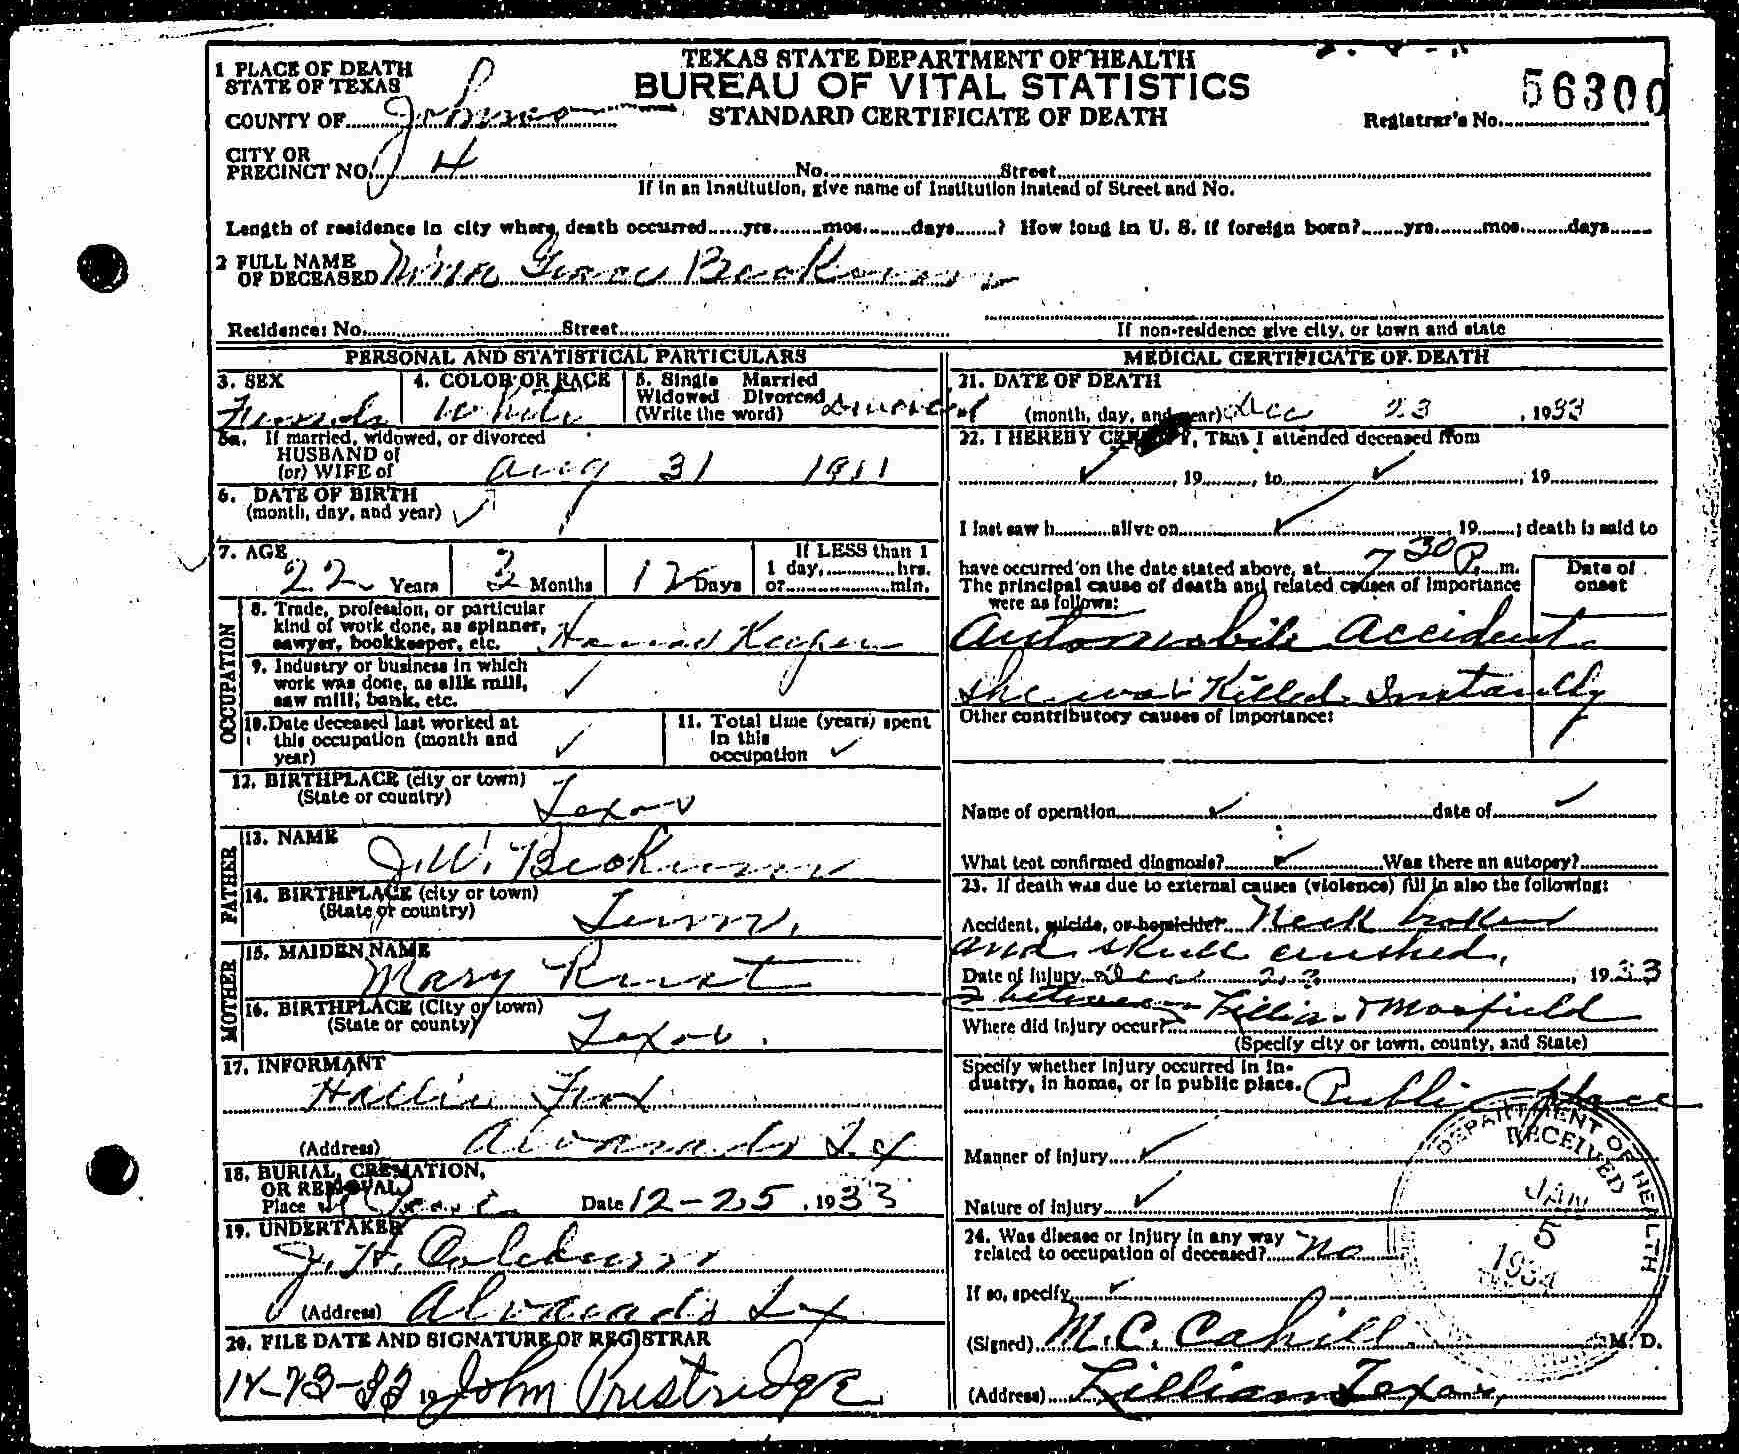 TEXAS STATE DEPARTMENT OF HEALTH
BUREAU OF VITAL STATISTICS
STANDARD CERTIFICATE OF DEATH
56300
Registrar's No.
1 PLACE OF DEATH
STATE OF TEXAS
COUNTY OF Johnson
CITY OR
PRECINCT NO. 4 No. Street
If in an Institution, give name of Institution instead of Street and No.
Length of residence in city where death occurred yrs. mos. days ? How long in U. S. if foreign born? yrs. mos. days
2 FULL NAME
OF DECEASED Nina Grace
Residence: No. Street
If non-residence give city, or town and state
PERSONAL AND STATISTICAL PARTICULARS
3. SEX 4. COLOR OR RACE 5. Single Married
Widowed Divorced
(Write the word)
Female White Divorced
5a. If married, widowed, or divorced
HUSBAND of
(or) WIFE of
Aug 31 1911
6. DATE OF BIRTH
(month, day, and year)
7. AGE If LESS than 1
22 Years 3 Months 12 Days 1 day, hrs.
or min.
OCCUPATION
8. Trade, profession, or particular
kind of work done, as spinner,
sawyer, bookkeeper, etc. House Keeper
9. Industry or business in which
work was done, as silk mill,
saw mill, bank, etc.
10. Date deceased last worked at
this occupation (month and
year)
11. Total time (years) spent
in this
occupation
12. BIRTHPLACE (city or town)
(State or country) Texas
FATHER
13. NAME
J. W.
14. BIRTHPLACE (city or town)
(State or country) Tenn.
MOTHER
15. MAIDEN NAME
Mary
16. BIRTHPLACE (City or town)
(State or county) Texas.
17. INFORMANT
Hallie
(Address) Alvarado Tx
18. BURIAL, CREMATION,
OR REMOVAL
Place Date 12-25, 1933
19. UNDERTAKER
J. H.
(Address) Alvarado Tx
20. FILE DATE AND SIGNATURE OF REGISTRAR
19 John Prestridge
MEDICAL CERTIFICATE OF DEATH
21. DATE OF DEATH
(month, day, and year) Dec 23, 1933
22. I HEREBY CERTIFY, That I attended deceased from
, 19 , to , 19
I last saw h alive on , 19 ; death is said to
have occurred on the date stated above, at 7 30 P. m.
The principal cause of death and related causes of importance
were as follows:
Date of
onset
Automobile Accident
she was Killed Instantly
Other contributory causes of importance:
Name of operation date of
What test confirmed diagnosis? Was there an autopsy?
23. If death was due to external causes (violence) fill in also the following:
Accident, suicide, or homicide? Neck broken
and skull crushed,
Date of injury Dec 23, 1933
between Lillian & Mansfield
Where did injury occur?
(Specify city or town, county, and State)
Specify whether injury occurred in in-
dustry, in home, or in public place. Public place
Manner of injury
Nature of injury
24. Was disease or injury in any way
related to occupation of deceased? No
If so, specify
(Signed) M. C. Cahill M. D.
(Address) Lillian Texas
DEPARTMENT OF HEALTH
RECEIVED
JAN
5
1934